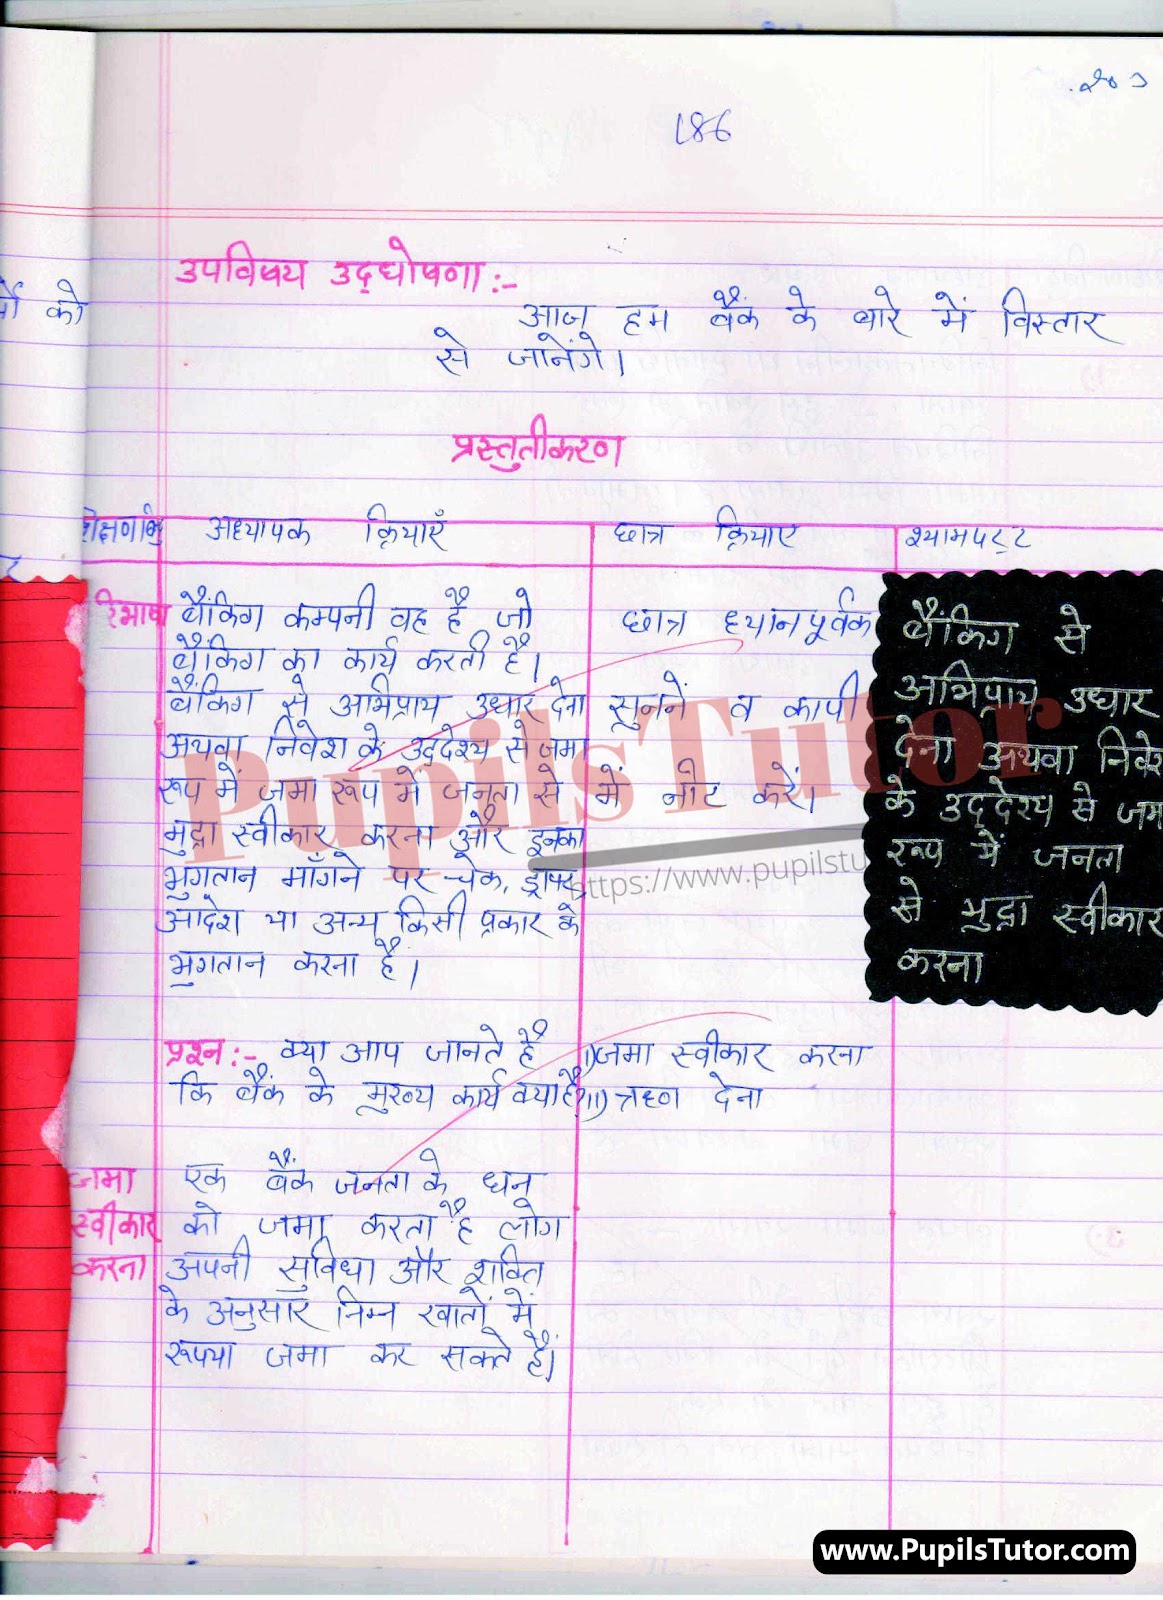 186
उपविषय उद्घोषणा :-
आज हम बैंक के बारे में विस्तार
से जानेंगे।
र्मो को
प्रस्तुतीकरण
अध्यापक क्रियाएँ
छात्र क्रियाए
श्यामपट्ट
रिभाषा
बैंकिग कम्पनी वह है जो
बैंकिग का कार्य करती है।
बैंकिग से अभिप्राय उधार देना
अथवा निवेश के उद्देश्य से जमा
रूप में जमा रूप में जनता से
मुद्रा स्वीकार करना और इनका
भुगतान माँगने पर चेक, ड्राफ्ट,
आदेश या अन्य किसी प्रकार के
भुगतान करना है।
छात्र ध्यानपूर्वक
सुननें व कापी
में नोट करें।
बैंकिग से
अभिप्राय उधार
देना अथवा निवेश
के उद्देश्य से जम
रूप में जनता
से मुद्रा स्वीकार
करना
प्रश्न :- क्या आप जानते है
कि बैंक के मुख्य कार्य क्या है?
i) जमा स्वीकार करना
ii) ऋण देना
जमा
स्वीकार
करना
एक बैंक जनता के धन
को जमा करता है लोग
अपनी सुविधा और शक्ति
के अनुसार निम्न खातों में
रूपया जमा कर सकते हैं।
PupilsTutor
https://www.pupilstu
www.PupilsTutor.com